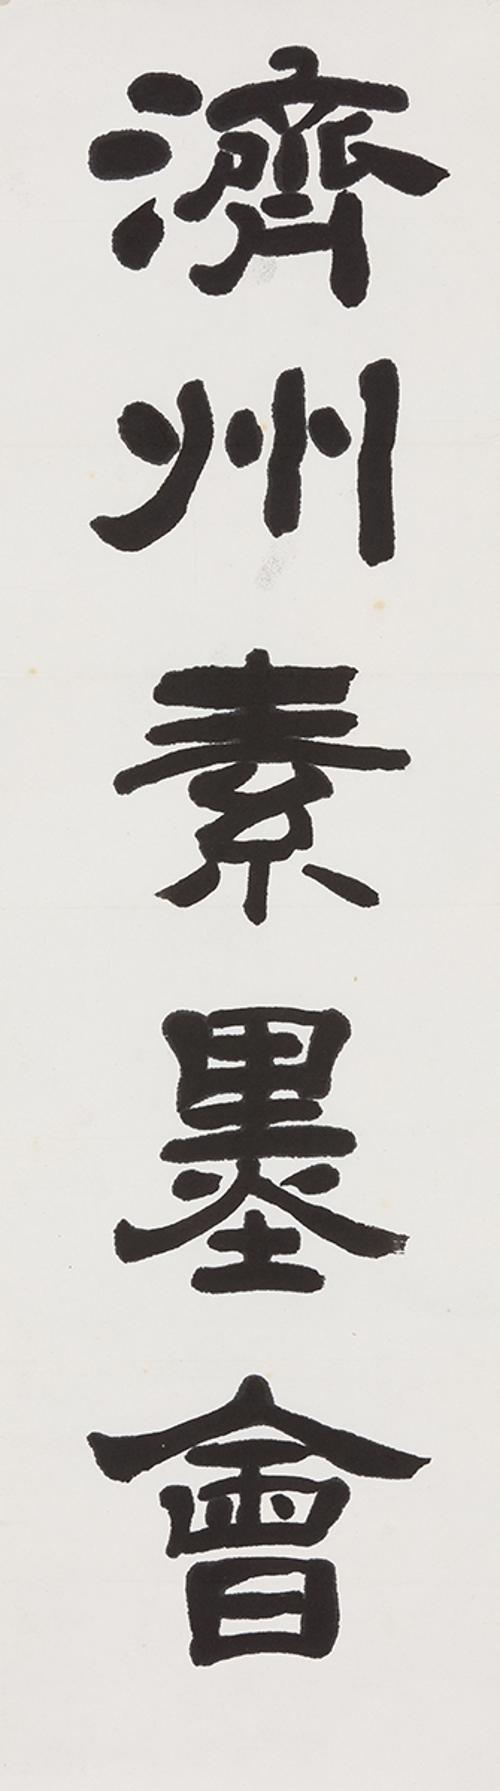 濟州素墨會